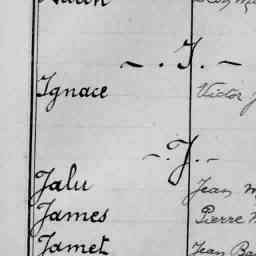 - . I . -
Ignace Victor
- . J . -
Jalu Jean
James Pierre
Jamet Jean